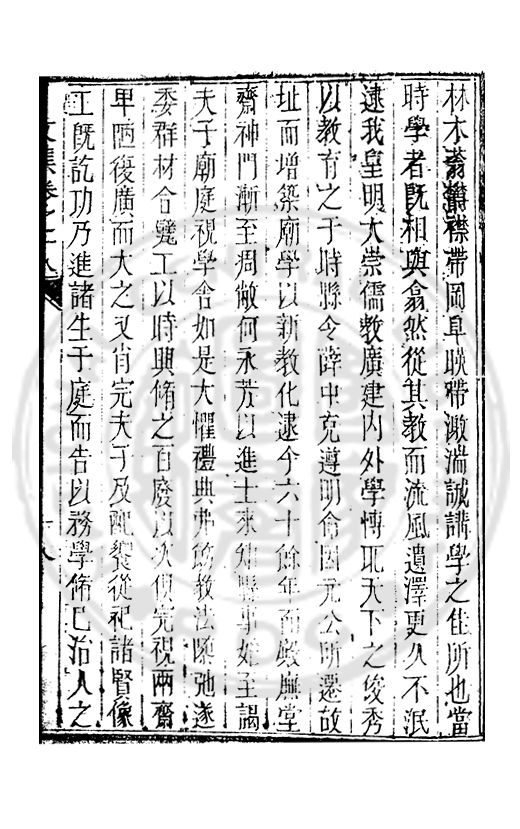 林木蓊鬱襟帶岡阜映帶湍誠講學之佳所也當
時學者既相與翕然從其教而流風遺澤更久不泯
逮我皇明大崇儒教廣建內外學慱取天下之俊秀
以教育之于時縣令薛中克遵明命因元公所遷故
址而增築廟學以新教化逮今六十餘年而殿廡堂
齋神門漸至凋敝何永芳以進士來知縣事始至謁
夫子廟庭視學舍如是大懼禮典弗飭教法隳弛遂
委群材合衆工以時興脩之百廢以次俱完視兩齋
卑陋復廣而大之又肖完夫子及配饗從祀諸賢像
工既訖功乃進諸生于庭而告以務學脩己治人之
文集卷之十八